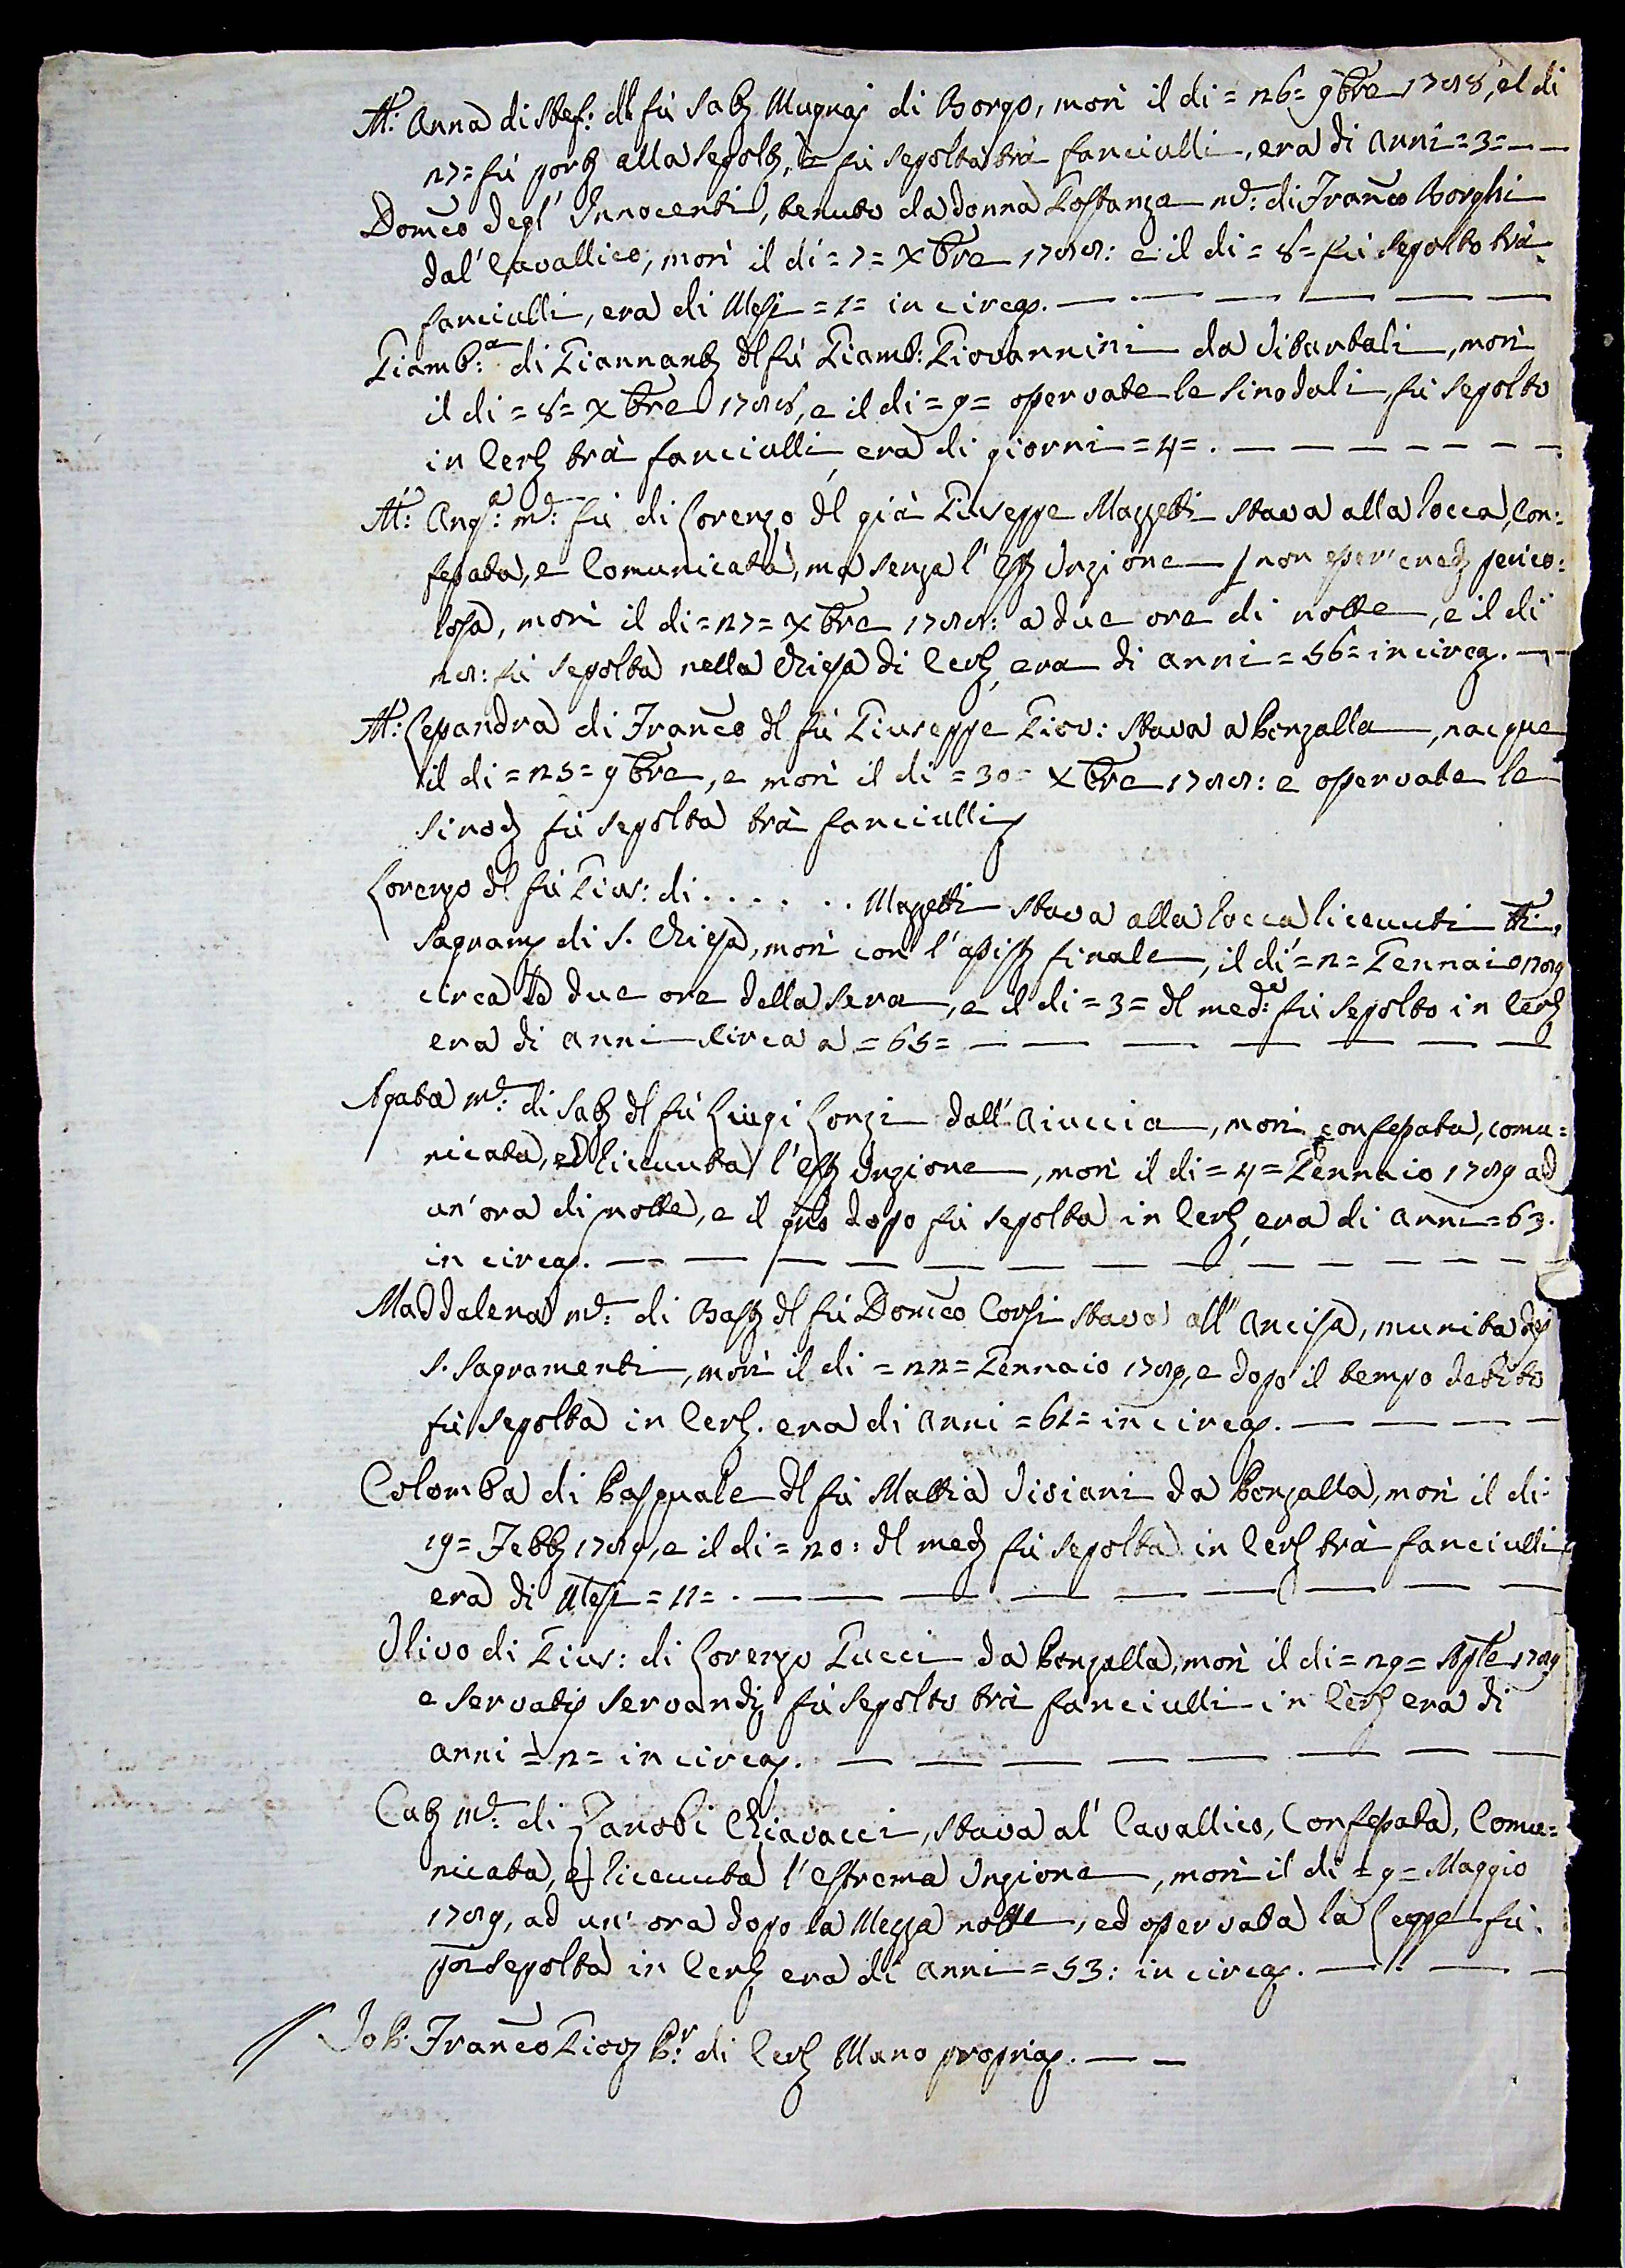 M: Anna di Stef: del fù Sab. Mugnaj di Borgo, morì il di = 26 = 9bre 1788, el di
27 = fù port. alla sepolt., e fù sepolta trà fanciulli, era di Anni = 3 = — —
Domco degl' Innocenti, tenuto da donna Costanza md: di Franco Borghi
dal' Cavallico, morì il di = 7 = Xbre 1788: e il di = 8 = fù sepolto trà
fanciulli, era di Mesi = 1 = in circa. — — — — — —
Giamb:a di Giannant. del fù Giamb: Giovannini da Vitartali, morì
il di = 8 = Xbre 1788, e il di = 9 = osservate le sinodali fù sepolto
in Cert. trà fanciulli era di giorni = 4 = . — — — — — — —
M: Ang:a md: fù di Lorenzo del già Giuseppe Mazzetti stava alla Rocca, Con:
fessata, e Comunicata, ma senza l' Est. Unzione / non esser' cred. perico:
losa, morì il di = 27 = Xbre 1788: a due ore di notte, e il di
28: fù sepolta nella Chiesa di Cert. era di anni = 56 = in circa. — —
M: Lessandra di Franco del fù Giuseppe Giov: stava a Bonzalla, nacque
il di = 25 = 9bre, e morì il di = 30 = Xbre 1788: e osservate le
sinod. fù sepolta trà fanciulli
Lorenzo del fù Gius: di . . . . . . Mazzetti stava alla Rocca ricevuti tti
Sagram. di S. Chiesa, morì con l' assist. finale, il di = 2 = Gennaio 1789
circa le due ore della sera, e il di = 3 = del med:o fù sepolto in Cert.
era di anni circa a = 65 = — — — — — — —
Agata md: di Sab. del fù Luigi Lonzi dall' Aiuccia, morì confessata, comu=
nicata, e ricevuta l' Est. Unzione, morì il di = 4 = Gennaio 1789 ad
un' ora di notte, e il gno dopo fù sepolta in Cert. era di anni = 63.
in circa. — — — — — — — — — — — —
Maddalena md: di Bast. del fù Domco Corsi stava all' Ancisa, munita de
S. Sagramenti, morì il di = 22 = Gennaio 1789, e dopo il tempo debito
fù sepolta in Cert. era di anni = 61 = in circa. — — — —
Colomba di Pasquale del fù Mattia Visiani da Bonzalla, morì il di
19 = Febb. 1789, e il di = 20: del med. fù sepolta in Cert. trà fanciulli
era di Mesi = 11 = . — — — — — — — — —
Ulivo di Gius: di Lorenzo Gucci da Bonzalla, morì il di = 29 = Aple 1789
e servatis servandis fù sepolto trà fanciulli in Cert. era di
anni = 2 = in circa. — — — — — — — —
Cat. md: di Zanobi Chiavacci, stava al' Cavallico, Confessata, Comu=
nicata, e ricevuta l' estrema Unzione, morì il di = 9 = Maggio
1789, ad un' ora dopo la Mezza notte, ed osservata la Legge fù
poi sepolta in Cert. era di anni = 53: in circa. — — —
Job. Franco Giov. Pr: di Cert. Mano propria. — —